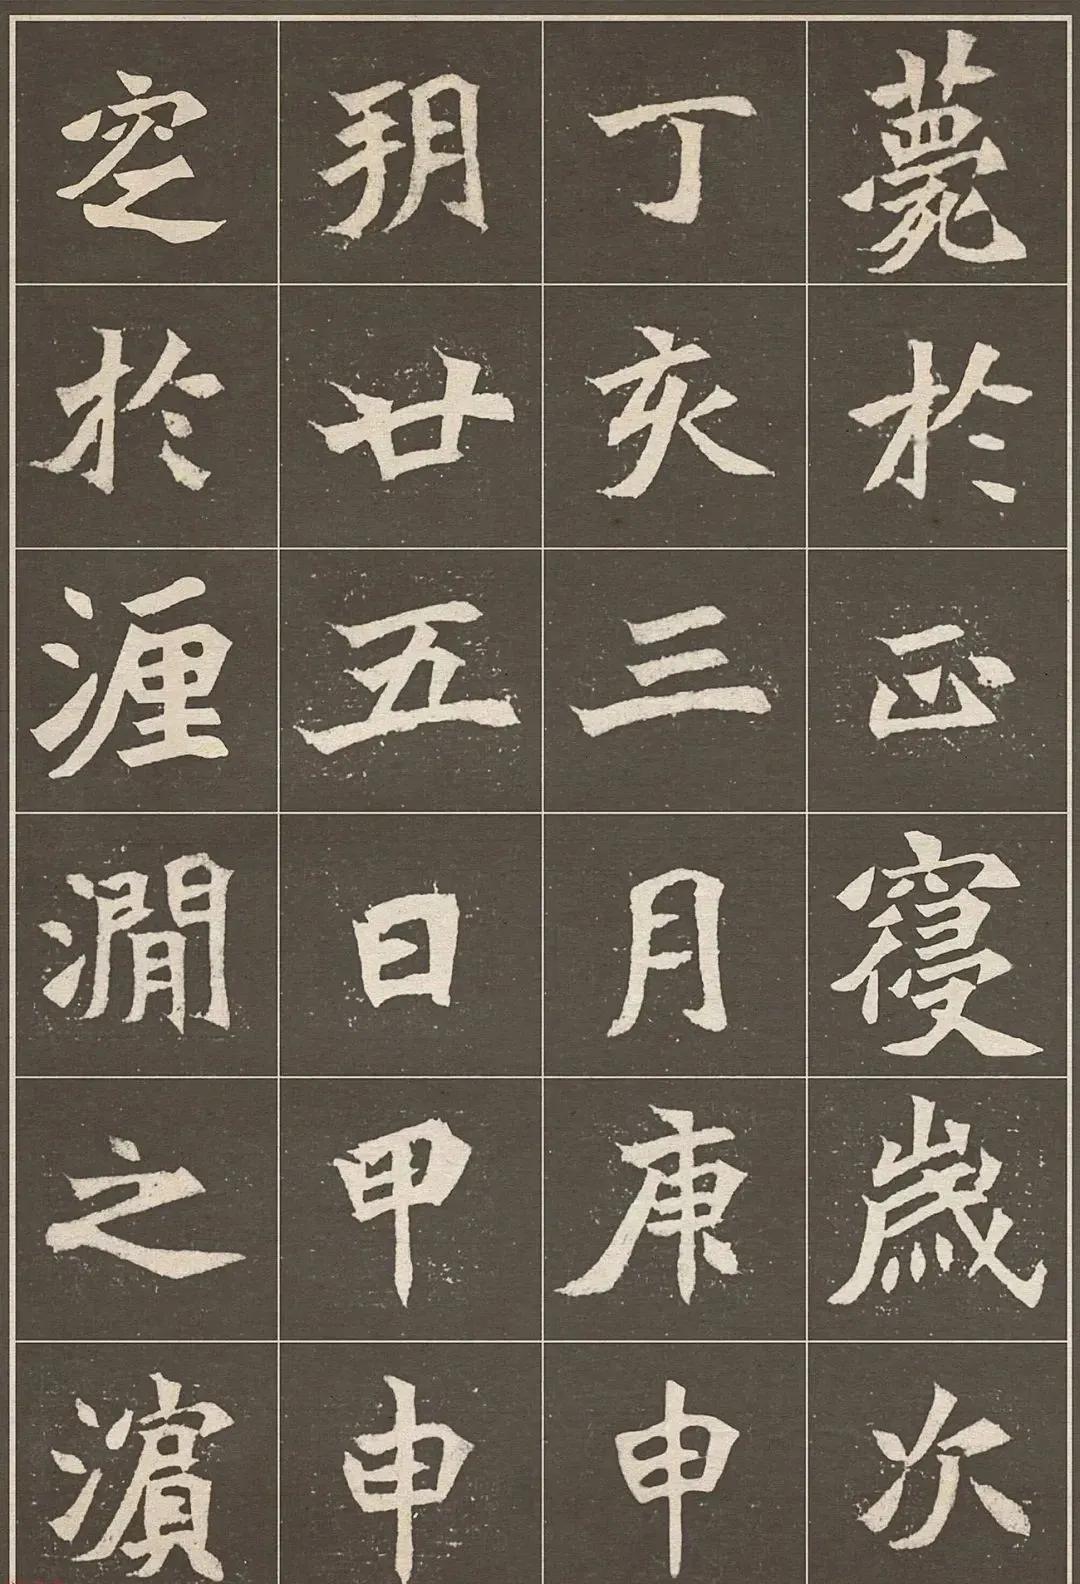 薨於正寢歲次
丁亥三月庚申
朔廿五日甲申
窆於瀍澗之濱